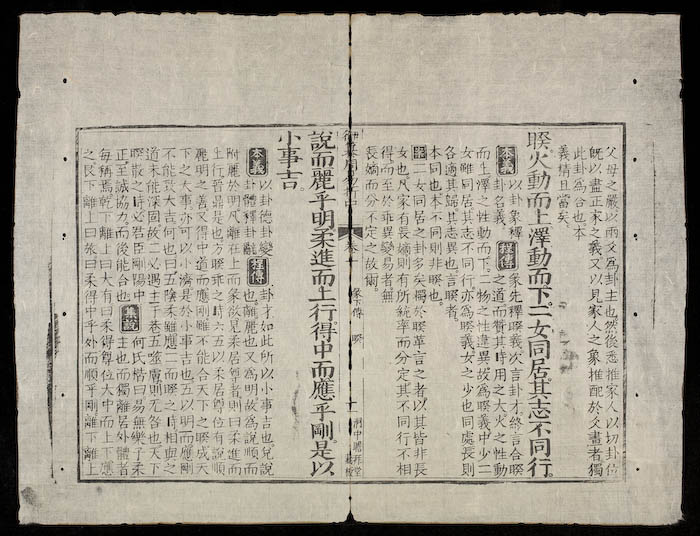 父母之嚴以兩爻為卦主也然後悉推家人以切卦位
旣以盡正家之義又以見家人之象推配於爻畫者獨
此卦為合也本
義精且當矣
睽火動而上澤動而下二女同居其志不同行
本義 以卦象釋卦名義 程傳 彖先釋睽義次言卦才終言合睽之道而贊其時用之大火之性動
而上澤之性動而下二物之性違異故為睽義中少二
女雖同居其志不同行亦為睽義女之少也同處長則
各適其歸其志異也言睽者
本同也本不同則非睽也
二女同居之卦多矣獨於睽革言之者以其皆非長
女也凡家有長嫡則有所統率而分定其不同行不相
得而至於乖異變易者無
長嫡而分不定之故爾
御纂周易折中 卷十 彖下傳 睽 十一
說而麗乎明柔進而上行得中而應乎剛是以
小事吉
本義 以卦德卦變卦體釋卦辭 程傳 卦才如此所以小事吉也兌說也離麗也又為明故為說順而
附麗於明凡離在上而彖欲見柔居尊者則曰柔進而
上行晉鼎是也方睽乖之時六五以柔居尊位有說順
麗明之善又得中道而應剛雖不能合天下之睽成天
下之大事亦可以小濟是於小事吉也五以明而應剛
不能致大吉何也曰五陰柔雖應二而睽之時相與之
道未能深固故二必遇主于巷五噬膚則无咎也天下
睽散之時必君臣剛陽中
正至誠協力而後能合也 集說 何氏楷曰易無樂乎柔主也而獨離居外體者
每稱焉乾下離上曰大有曰柔得尊位大中而上下應
之艮下離上曰旅曰柔得中乎外而順乎剛離下離上